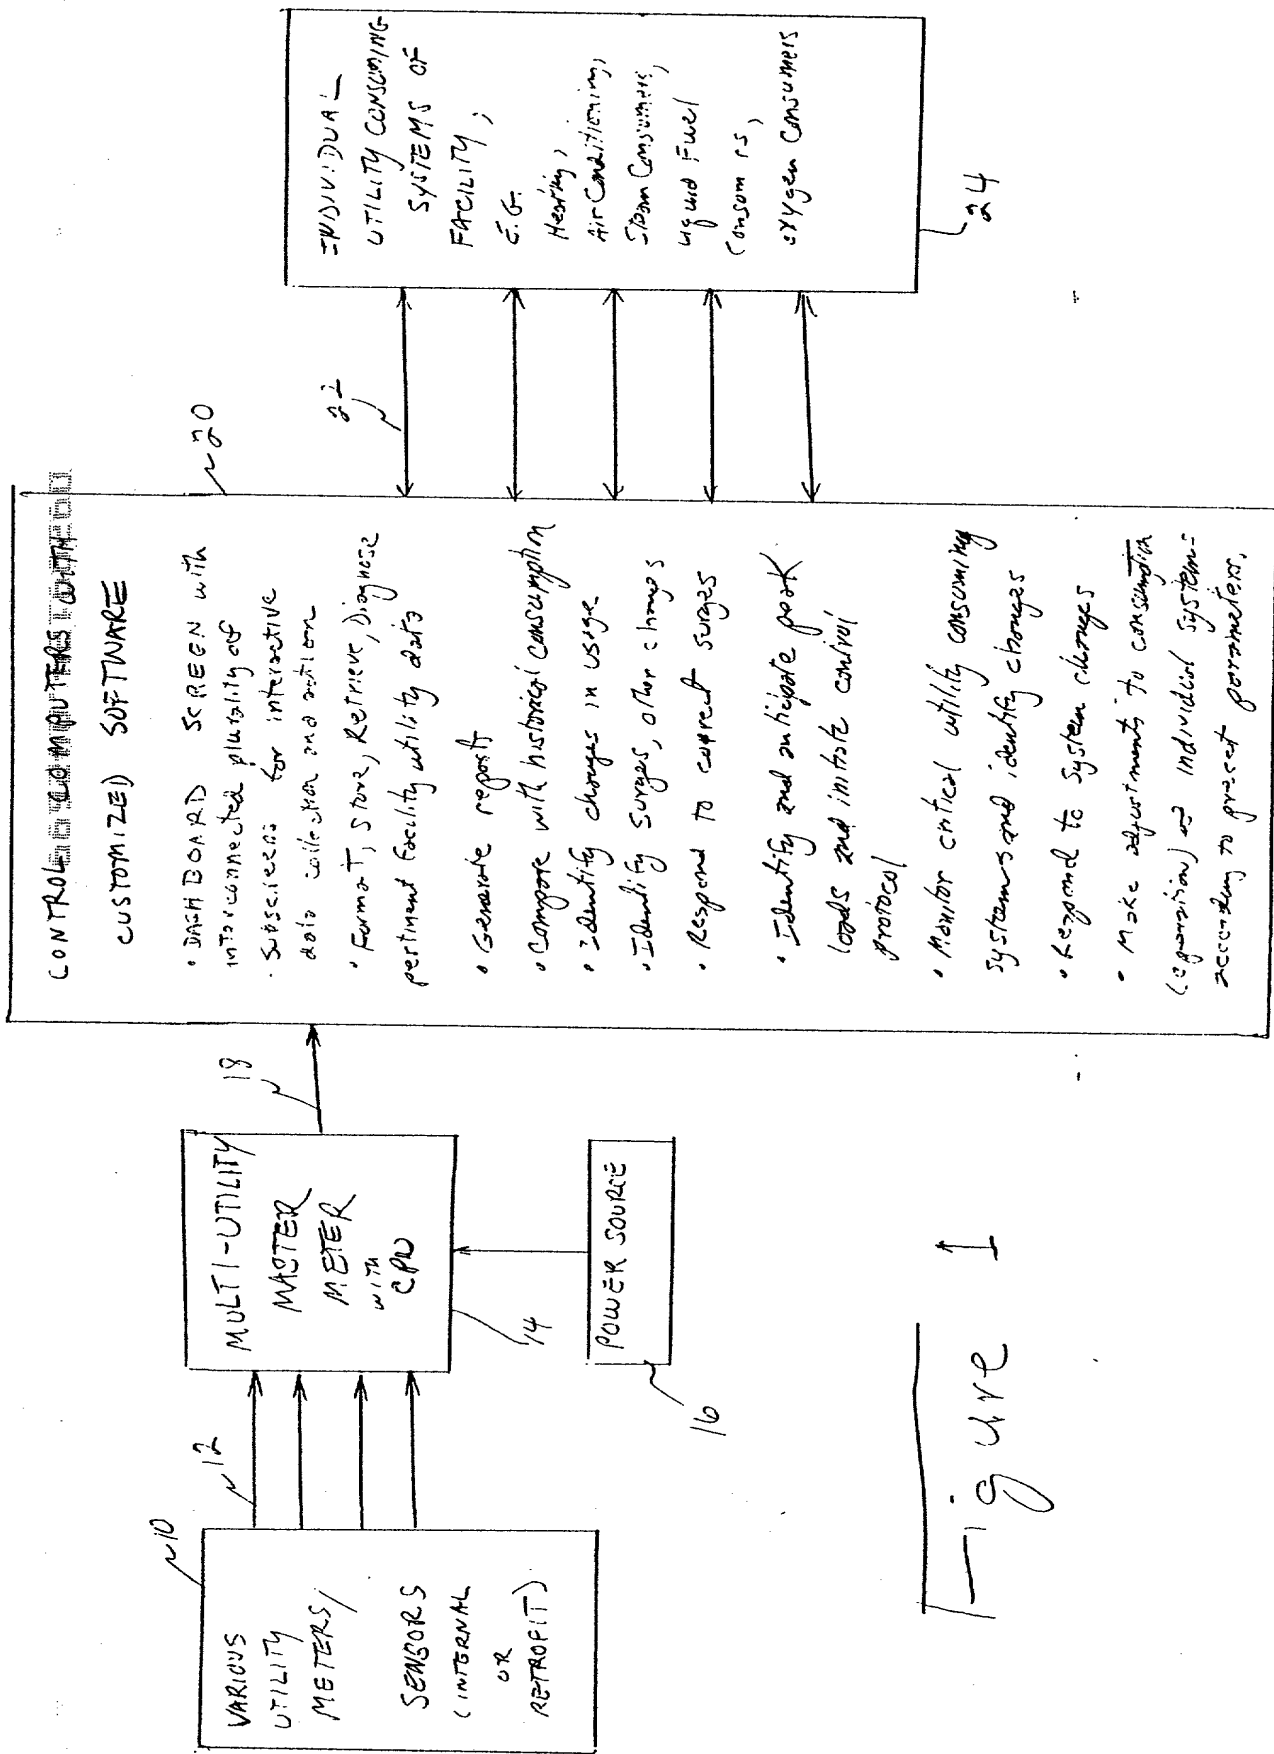 VARIOUS
UTILITY
METERS/
SENSORS
(INTERNAL
OR
RETROFIT)
10
12
MULTI-UTILITY
MASTER
METER
WITH
CPU
14
POWER SOURCE
16
18
CONTROL COMPUTERS WITH
CUSTOMIZED SOFTWARE
• DASH BOARD SCREEN with
interconnected plurality of
• Subscreens for interactive
data collection and action
• Format, Store, Retrieve, Diagnose
pertinent facility utility data
• Generate reports
• Compare with historical consumption
• Identify changes in usage
• Identify surges, other changes
• Respond to current surges
• Identify and anticipate peak
loads and initiate control
protocol
• Monitor critical utility consuming
systems and identify changes
• Respond to system changes
• Make adjustments to consumption
(operation) of individual systems
according to preset parameters.
20
22
INDIVIDUAL
UTILITY CONSUMING
SYSTEMS OF
FACILITY;
E.G.
Heating,
Air Conditioning,
Steam Consumers,
Liquid Fuel
Consumers,
oxygen Consumers
24
Figure 1